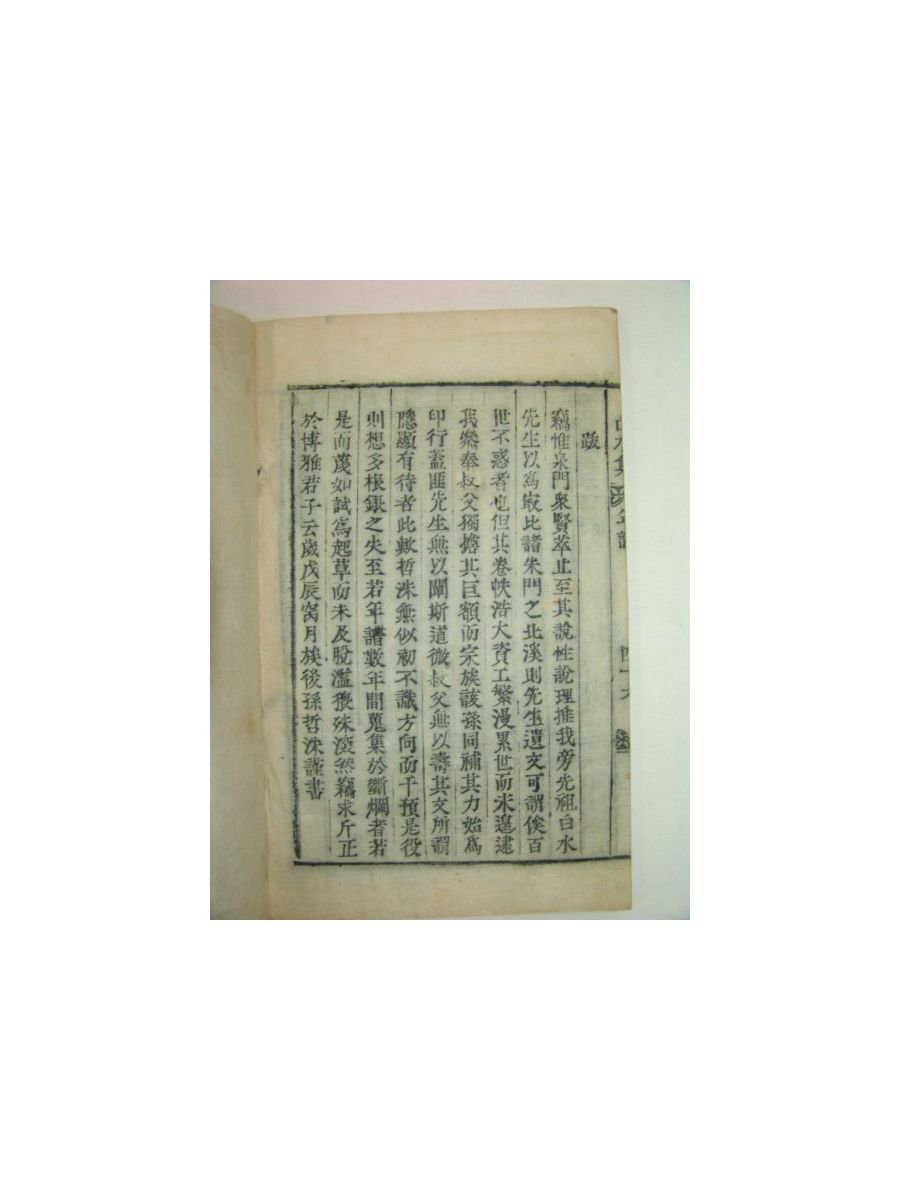 白水集 年譜 四十六
跋
竊惟泉門衆賢萃止至其說性說理推我旁先祖白水
先生以爲㝡比諸朱門之北溪則先生遺文可謂俟百
世不惑者也但其卷帙浩大資工繁漫累世而未遑逮
我燦奉叔父獨擔其巨額而宗族該孫同補其力始爲
印行蓋匪先生無以闡斯道微叔父無以壽其文所謂
隱顯有待者此歟哲洙無似初不識方向而干預是役
則想多根銀之失至若年譜數年間蒐集於斷爛者若
是而蔑如試爲起草而未及脫濫猥殊深然竊求斤正
於博雅君子云歲戊辰窩月族後孫哲洙謹書